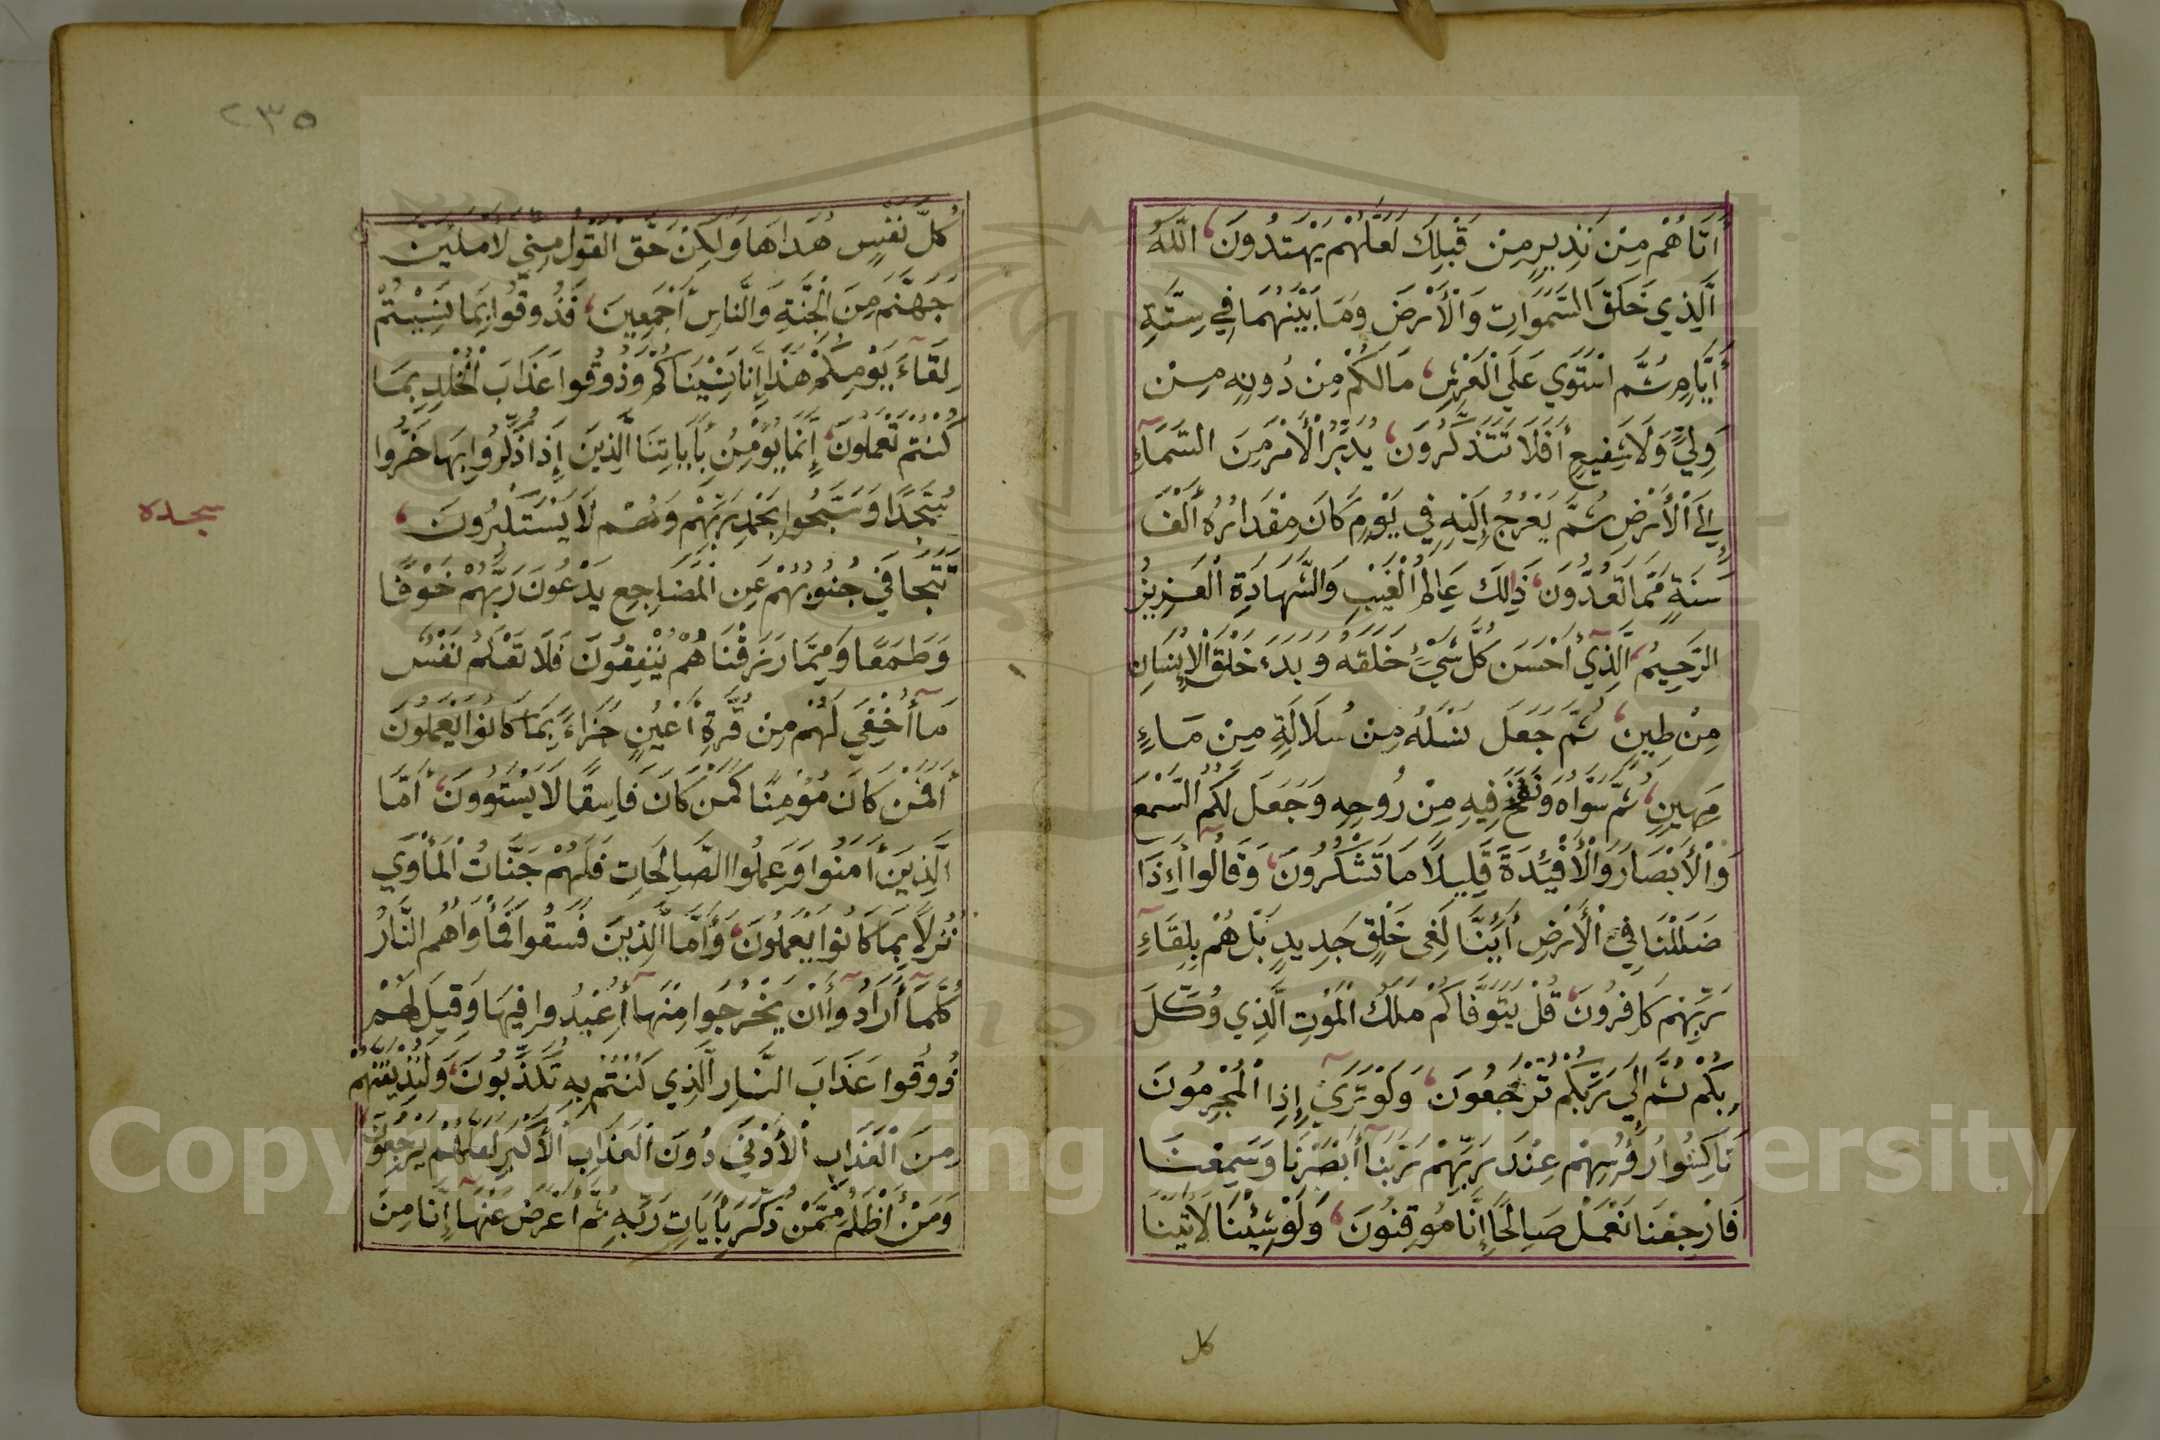 أَتَاهُمْ مِنْ نَذِيرٍ مِنْ قَبْلِكَ لَعَلَّهُمْ يَهْتَدُونَ، اللَّهُ
الَّذِي خَلَقَ السَّمَوَاتِ وَالْأَرْضَ وَمَا بَيْنَهُمَا فِي سِتَّةِ
أَيَّامٍ ثُمَّ اسْتَوَي عَلَي الْعَرْشِ، مَا لَكُمْ مِنْ دُونِهِ مِنْ
وَلِيٍّ وَلَا شَفِيعٍ أَفَلَا تَتَذَكَّرُونَ، يُدَبِّرُ الْأَمْرَ مِنَ السَّمَآءِ
إِلَي الْأَرْضِ ثُمَّ يَعْرُجُ إِلَيْهِ فِي يَوْمٍ كَانَ مِقْدَارُهُ أَلْفَ
سَنَةٍ مِمَّا تَعُدُّونَ، ذَلِكَ عَالِمُ الْغَيْبِ وَالشَّهَادَةِ الْعَزِيزُ
الرَّحِيمُ، الَّذِي أَحْسَنَ كُلَّ شَيْءٍ خَلَقَهُ وَبَدَءَ خَلْقَ الْإِنْسَانِ
مِنْ طِينٍ، ثُمَّ جَعَلَ نَسْلَهُ مِنْ سُلَالَةٍ مِنْ مَاءٍ
مَهِينٍ، ثُمَّ سَوَّاهُ وَنَفَخَ فِيهِ مِنْ رُوحِهِ وَجَعَلَ لَكُمُ السَّمْعَ
وَالْأَبْصَارَ وَالْأَفْئِدَةَ قَلِيلًا مَا تَشْكُرُونَ، وَقَالُوا أَإِذَا
ضَلَلْنَا فِي الْأَرْضِ أَئِنَّا لَفِي خَلْقٍ جَدِيدٍ بَلْ هُمْ بِلِقَآءِ
رَبِّهِمْ كَافِرُونَ، قُلْ يَتَوَفَّاكُمْ مَلَكُ الْمَوْتِ الَّذِي وُكِّلَ
بِكُمْ ثُمَّ إِلَي رَبِّكُمْ تُرْجَعُونَ، وَلَوْ تَرَي إِذِ الْمُجْرِمُونَ
نَاكِسُوا رُؤُسِهِمْ عِنْدَ رَبِّهِمْ رَبَّنَا أَبْصَرْنَا وَسَمِعْنَا
فَارْجِعْنَا نَعْمَلْ صَالِحًا إِنَّا مُوقِنُونَ، وَلَوْ شِئْنَا لَآتَيْنَا
كل
٢٣٥
كُلَّ نَفْسٍ هُدَاهَا وَلَكِنْ حَقَّ الْقَوْلُ مِنِّي لَأَمْلَئَنَّ
جَهَنَّمَ مِنَ الْجِنَّةِ وَالنَّاسِ أَجْمَعِينَ، فَذُوقُوا بِمَا نَسِيتُمْ
لِقَآءَ يَوْمِكُمْ هَذَا إِنَّا نَسِينَاكُمْ وَذُوقُوا عَذَابَ الْخُلْدِ بِمَا
كُنْتُمْ تَعْمَلُونَ، إِنَّمَا يُؤْمِنُ بِأَيَاتِنَا الَّذِينَ إِذَا ذُكِّرُوا بِهَا خَرُّوا
سُجَّدًا وَسَبَّحُوا بِحَمْدِ رَبِّهِمْ وَهُمْ لَا يَسْتَكْبِرُونَ،
سجده
تَتَجَافَي جُنُوبُهُمْ عَنِ الْمَضَاجِعِ يَدْعُونَ رَبَّهُمْ خَوْفًا
وَطَمَعًا وَمِمَّا رَزَقْنَاهُمْ يُنْفِقُونَ فَلَا تَعْلَمُ نَفْسٌ
مَآ أُخْفِيَ لَهُمْ مِنْ قُرَّةِ أَعْيُنٍ جَزَاءً بِمَا كَانُوا يَعْمَلُونَ
أَفَمَنْ كَانَ مُؤْمِنًا كَمَنْ كَانَ فَاسِقًا لَا يَسْتَوُونَ، أَمَّا
الَّذِينَ أَمَنُوا وَعَمِلُوا الصَّالِحَاتِ فَلَهُمْ جَنَّاتُ الْمَأْوَي
نُزُلًا بِمَا كَانُوا يَعْمَلُونَ، وَأَمَّا الَّذِينَ فَسَقُوا فَمَأْوَاهُمُ النَّارُ
كُلَّمَآ أَرَادُوآ أَنْ يَخْرُجُوا مِنْهَآ أُعِيدُوا فِيهَا وَقِيلَ لَهُمْ
ذُوقُوا عَذَابَ النَّارِ الَّذِي كُنْتُمْ بِهِ تُكَذِّبُونَ، وَلَنُذِيقَنَّهُمْ
مِنَ الْعَذَابِ الْأَدْنَي دُونَ الْعَذَابِ الْأَكْبَرِ لَعَلَّهُمْ يَرْجِعُونَ
وَمَنْ أَظْلَمُ مِمَّنْ ذُكِّرَ بِأَيَاتِ رَبِّهِ ثُمَّ أَعْرَضَ عَنْهَآ إِنَّا مِنَ
Copyright © King Saud University